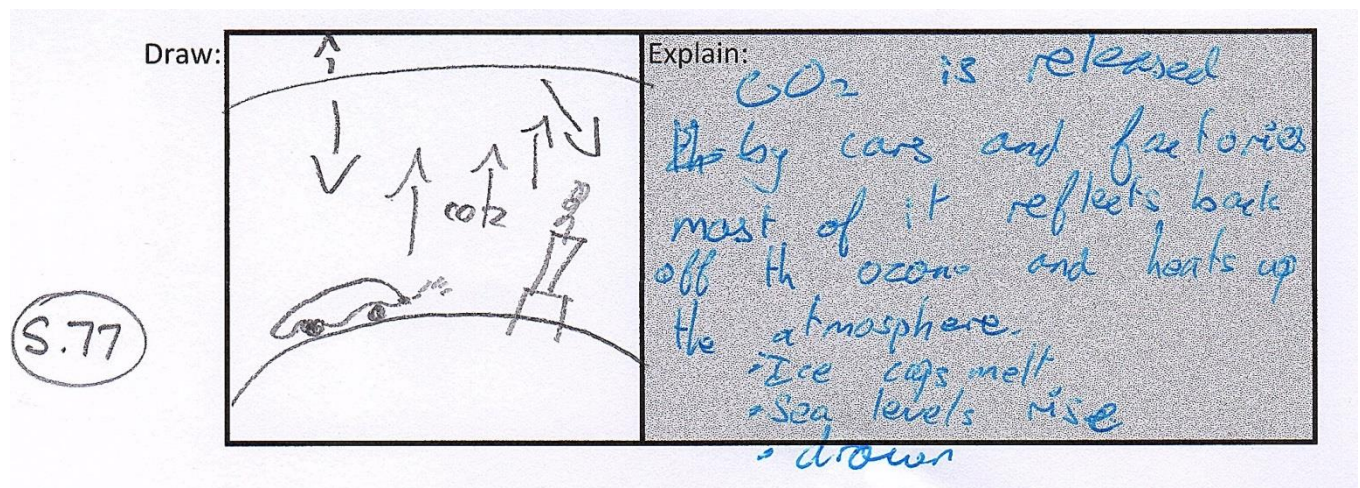 Draw:
co2
S.77
Explain:
CO2 is released
by cars and factories
most of it reflects back
off th ozone and heats up
the atmosphere.
• Ice caps melt
• Sea levels rise
• drown